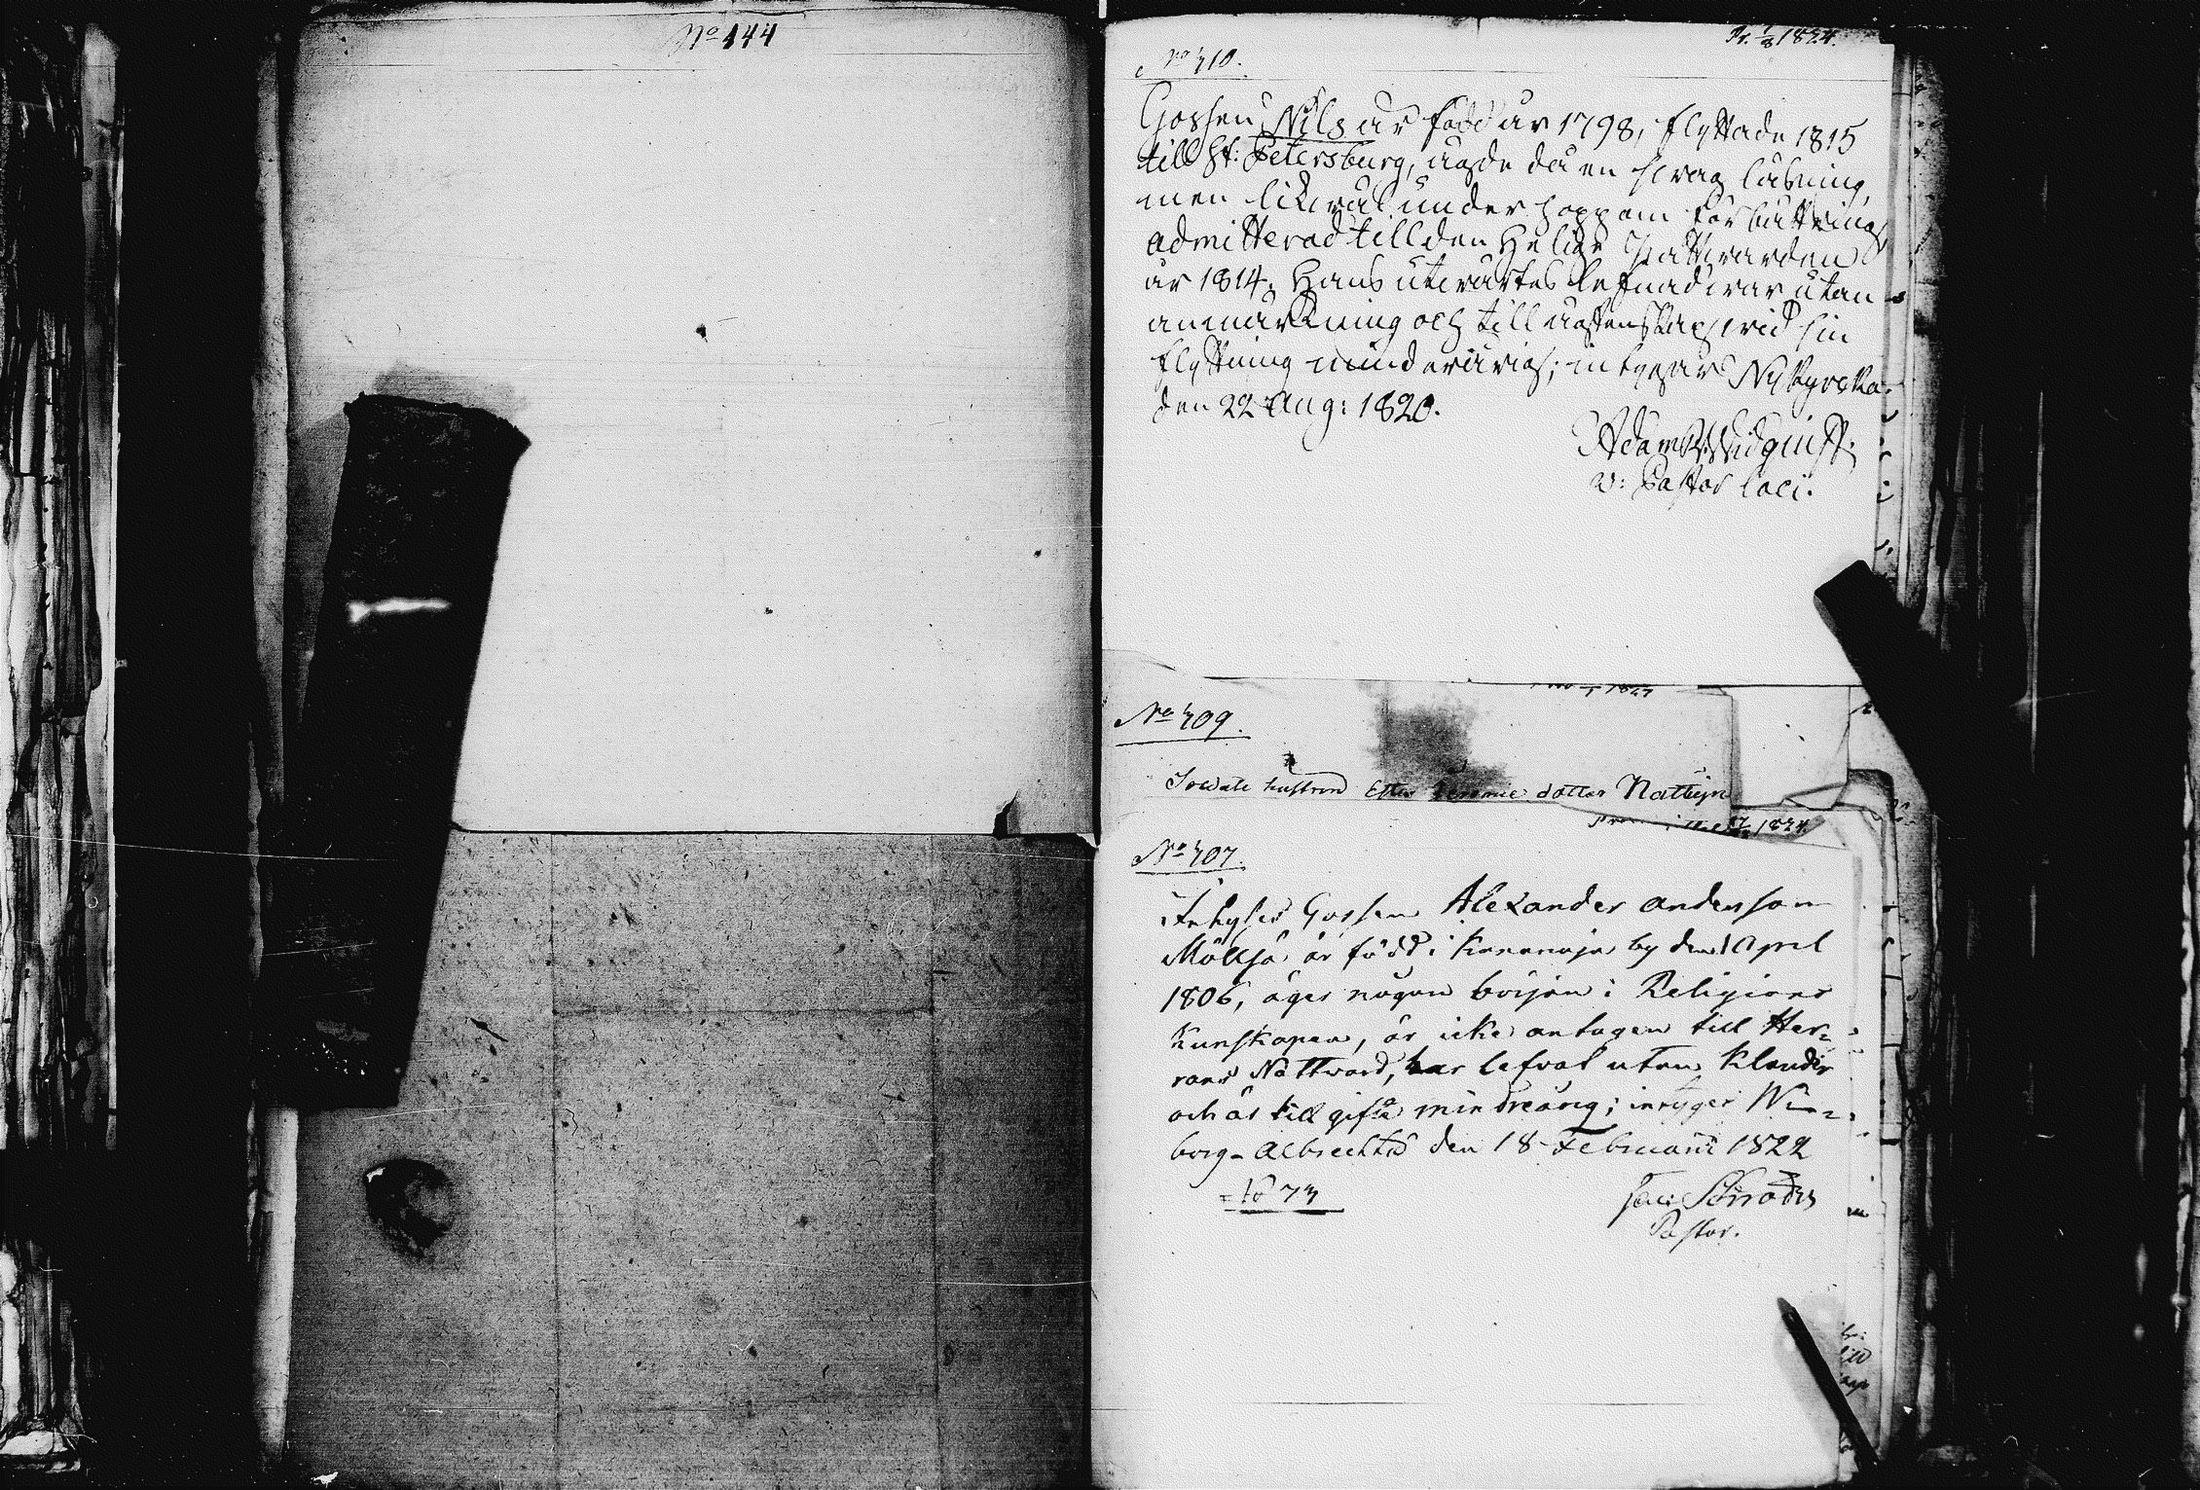 No 444
Pr. 1/8 1824.
No 710.
Gossen Nils är född år 1798, flyttade 1815
till St: Petersburg, ägde då en svag läsning,
men likväl under hopp om förbättring,
admitterad till den Helige Nattvarden
år 1814. Hans utvärtes lefnad var utan
anmärkning och till ägtenskap vid sin
flyttning minderårig; intygar Nykyrcka.
den 22 Aug: 1820.
Adam
v: Pastor loci.
No 709.
Soldate hustrun Ester dotter
1824
No 707.
Inhyses Gossen Alexander Andersson
Mölsjö är född i by den 1 April
1806, äger någon början i Religions
Kunskapen, är icke antagen till Her=
rans Nattvard, har lefvat utan klander
och är till gifte minderårig; intyger Wi
borg - Albrechts den 18 Februarii 1822
No 73
Schröder
Pastor.